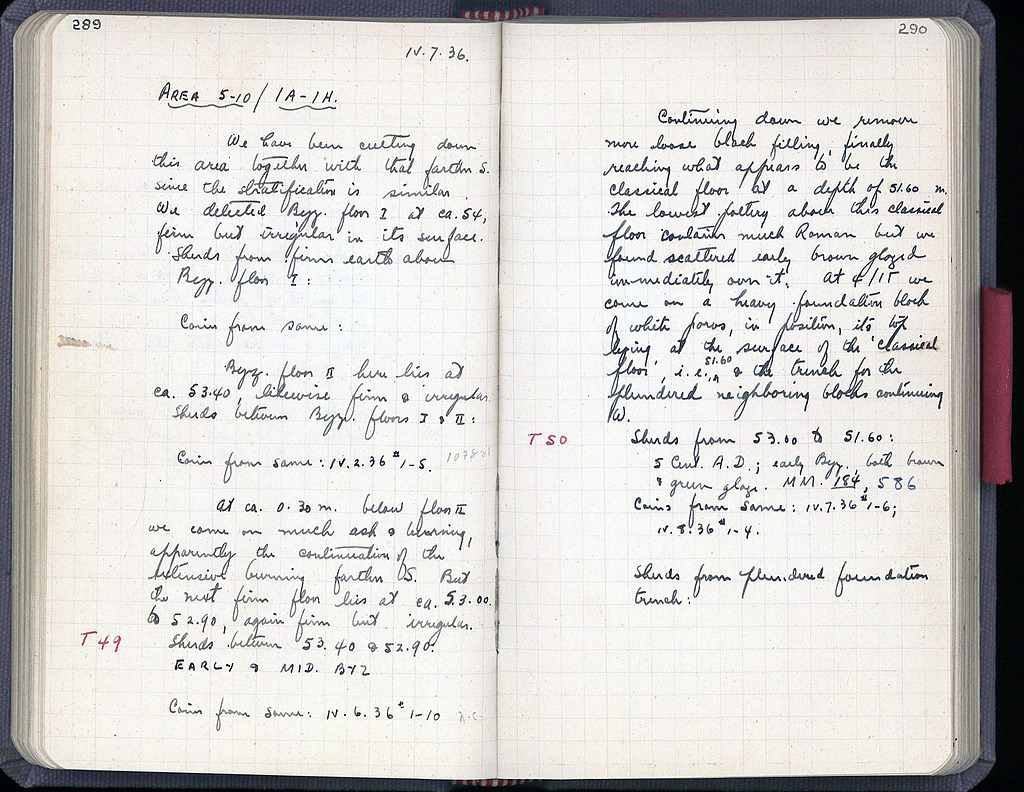 289
IV.7.36.
AREA 5-10/1A-1H.
We have been cutting down
this area together with that farther S.
since the stratification is similar.
We detected Byz. floor I at ca. 54,
firm but irregular in its surface.
Sherds from firm earth above
Byz. floor I:
Coins from same:
Byz. floor II here lies at
ca. 53.40, likewise firm & irregular.
Sherds between Byz. floors I & II:
Coins from same: IV.2.36 #1-5.
At ca. 0.30 m. below floor II
we come on much ash & burning,
apparently the continuation of the
extensive burning farther S. But
the next firm floor lies at ca. 53.00
to 52.90, again firm but irregular.
T 49
Sherds between 53.40 & 52.90:
EARLY & MID. BYZ
Coins from same: IV.6.36 #1-10
290
Continuing down we remove
more loose black filling, finally
reaching what appears to be the
classical floor at a depth of 51.60 m.
The lowest pottery above this classical
floor contains much Roman but we
found scattered early brown glazed
immediately over it. At 4/15 we
come on a heavy foundation block
of white poros, in position, its top
lying at the surface of the classical
floor, i.e. 51.60 & the trench for the
plundered neighboring blocks continuing
W.
T 50
Sherds from 53.00 to 51.60:
5 Cent. A.D.; early Byz. both brown
& green glaze. MM. 184, 586
Coins from same: IV.7.36 #1-6;
IV.8.36 #1-4.
Sherds from plundered foundation
trench: